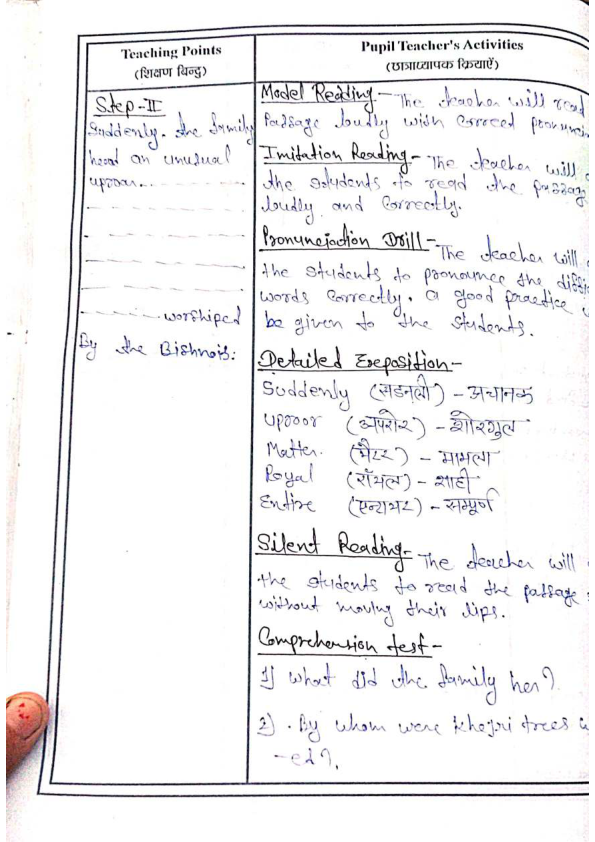 Teaching Points
(शिक्षण बिन्दु)
Step-II
Suddenly. the family
head an unusual
uproar..
worshiped
By the Bishnois.
Pupil Teacher's Activities
(छात्राध्यापक क्रियाएँ)
Model Reading - The teacher will read
Passage loudly with Correct
Imitation Reading - The teacher will
the students to read the
loudly and Correctly.
Pronunciation Drill - The teacher will
the students to pronounce the
words Correctly. a good practice
be given to the students.
Detailed Exeposition -
Suddenly (सडनली) - अचानक
uproor (अपरोर) - शोरगुल
Matter. (मैटर) - मामला
Royal (रॉयल) - शाही
Entire (एन्टायर) - सम्पूर्ण
Silent Reading - The teacher will
the students to read the passage
without moving their lips.
Comprehension test -
1) what did the family her?
2) . By whom were khejri trees
-ed?.